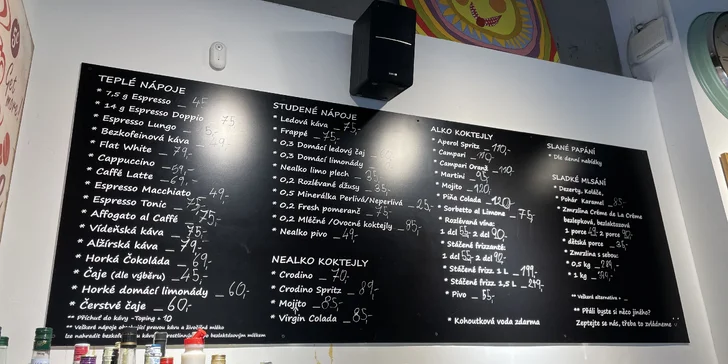 TEPLÉ NÁPOJE
* 7,5 g Espresso _ 45
* 14 g Espresso Doppio _ 75
* Espresso Lungo
* Bezkofeinová káva
* Flat White _ 79,-
* Cappuccino _ 69,-
* Caffé Latte _ 69,-
* Espresso Macchiato _ 49,-
* Espresso Tonic _ 75,-
* Affogato al Caffé _ 75,-
* Vídeňská káva _ 75,-
* Alžírská káva _ 79,-
* Horká čokoláda _ 69,-
* Čaje (dle výběru) _ 45,-
* Horké domácí limonády _ 60,-
* Čerstvé čaje _ 60,-
** Příchuť do kávy -Toping + 10
STUDENÉ NÁPOJE
* Ledová káva _ 75,-
* Frappé _ 75,-
* 0,3 Domácí ledový čaj
* 0,3 Domácí limonády
* Nealko limo plech _ 35
* 0,2 Rozlévané džusy _ 35,-
* 0,5 Minerálka Perlivá/Neperlivá _ 25,-
* 0,2 Fresh pomeranč _ 79,-
* 0,2 Mléčné /Ovocné koktejly _ 95,-
* Nealko pivo _ 49,-
NEALKO KOKTEJLY
* Crodino _ 70,-
* Crodino Spritz _ 89,-
* Mojito _ 85,-
* Virgin Colada _ 85,-
ALKO KOKTEJLY
* Aperol Spritz _ 110,-
* Campari _ 110,-
* Campari Oranž _ 110,-
* Martini _ 95,-
* Mojito _ 120,-
* Piňa Colada _ 120,-
* Sorbetto al Limone _ 75,-
* Rozlévaná vína:
1 dcl 55,- 2 dcl 90,-
* Stáčené frizzanté:
1 dcl 55,- 2 dcl 90,-
* Stáčené frizz. 1 L _ 199,-
* Stáčené frizz 1,5 L _ 249,-
* Pivo _ 55,-
* Kohoutková voda zdarma
SLANÉ PAPÁNÍ
* Dle denní nabídky
SLADKÉ MLSÁNÍ
* Dezerty, Koláče,
* Pohár Karamel _ 85,-
* Zmrzlina Créme de La Créme
bezlepková, bezlaktózová
1 porce 49,- 2 porce
* dětská porce _ 35,-
* Zmrzlina s sebou:
* 0,5 kg _ 289,-
* 1 kg
** Veškerá alternativa
** Přáli byste si něco jiného?
Zeptejte se nás, třeba to zvládneme